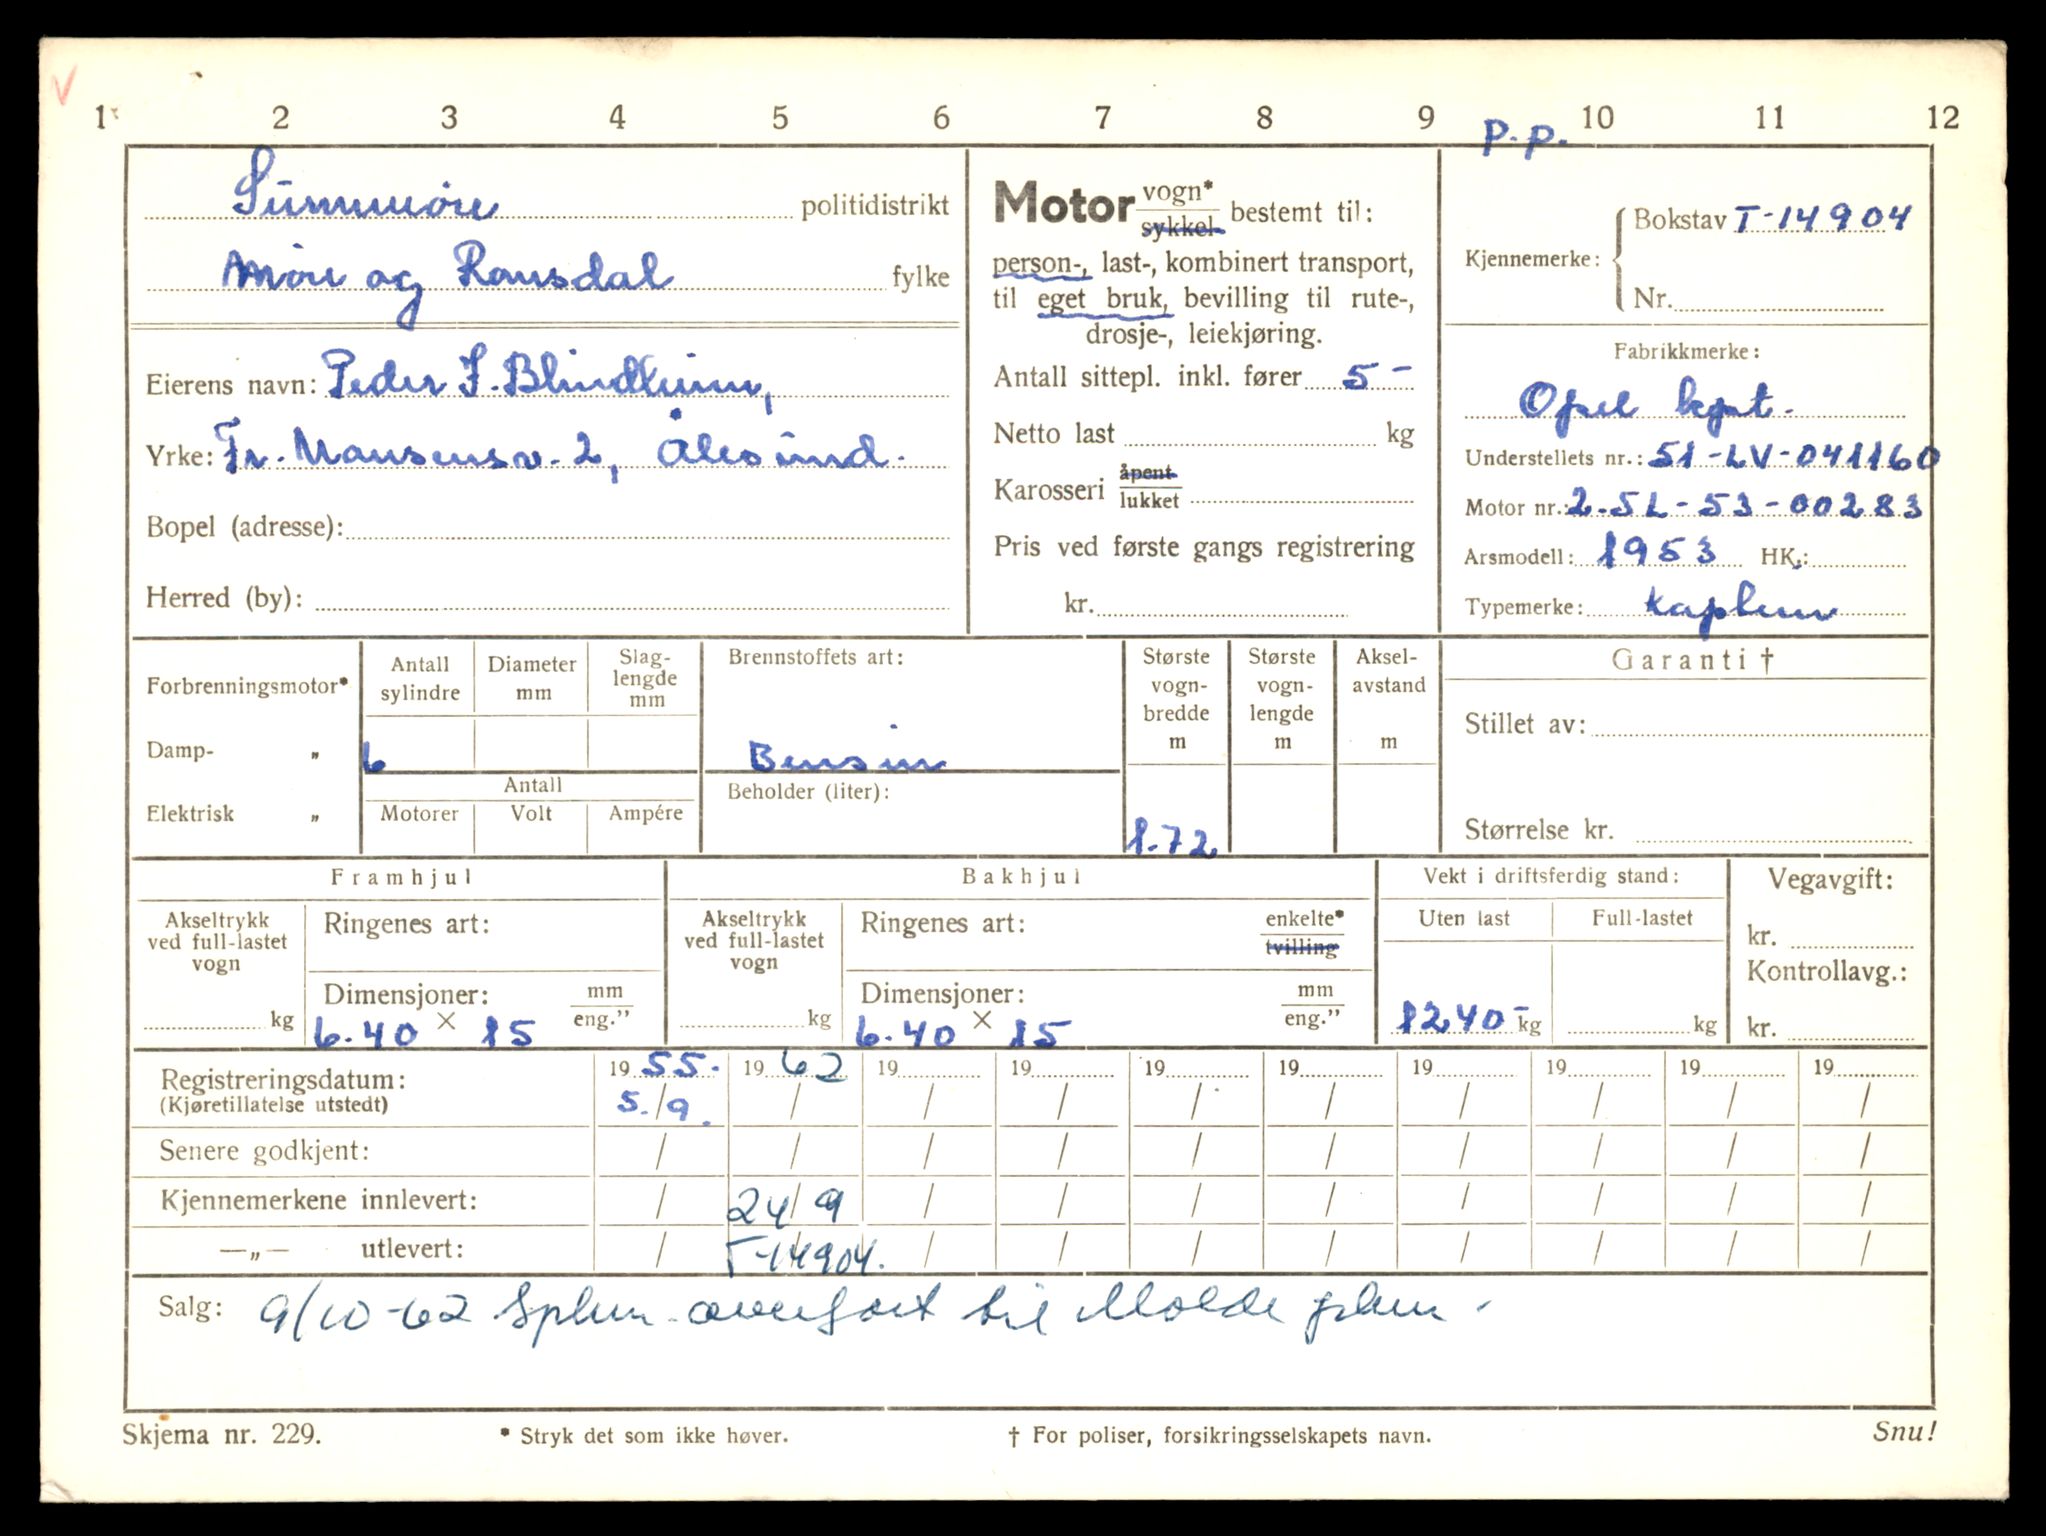 V
1 2 3 4 5 6 7 8 9 10 11 12
P.P.
Sunnmøre politidistrikt
Møre og Romsdal fylke
Eierens navn: Peder S. Blindheim,
Yrke: Fr. Nansensv. 2, Ålesund.
Bopel (adresse):
Herred (by):
Motor vogn* / sykkel bestemt til:
person-, last-, kombinert transport,
til eget bruk, bevilling til rute-,
drosje-, leiekjøring.
Antall sittepl. inkl. fører 5 -
Netto last kg
Karosseri åpent / lukket
Pris ved første gangs registrering
kr.
Kjennemerke: Bokstav T-14904
Nr.
Fabrikkmerke:
Opel kpt.
Understellets nr.: 51-LV-041160
Motor nr.: 2.5L-53-00283
Arsmodell: 1953 HK.:
Typemerke: Kaptein
Forbrenningsmotor*
Damp- „
Elektrisk „
Antall sylindre
Diameter mm
Slag-lengde mm
6
Antall
Motorer Volt Ampére
Brennstoffets art:
Bensin
Beholder (liter):
Største vogn-bredde m
1.72
Største vogn-lengde m
Aksel-avstand m
Garanti †
Stillet av:
Størrelse kr.
Framhjul
Akseltrykk ved full-lastet vogn
kg
Ringenes art:
Dimensjoner: mm / eng.”
6.40 × 15
Bakhjul
Akseltrykk ved full-lastet vogn
kg
Ringenes art: enkelte* / tvilling
Dimensjoner: mm / eng.”
6.40 × 15
Vekt i driftsferdig stand:
Uten last Full-lastet
1240 - kg kg
Vegavgift:
kr.
Kontrollavg.:
kr.
Registreringsdatum: 19 55. 19 62 19 19 19 19 19 19 19 19
(Kjøretillatelse utstedt) 5./9. / / / / / / / / /
Senere godkjent: / / / / / / / / / /
Kjennemerkene innlevert: / 24/9 / / / / / / / /
—„— utlevert: / T-14904. / / / / / / / /
Salg: 9/10-62 overført til Molde
Skjema nr. 229. * Stryk det som ikke høver. † For poliser, forsikringsselskapets navn. Snu!